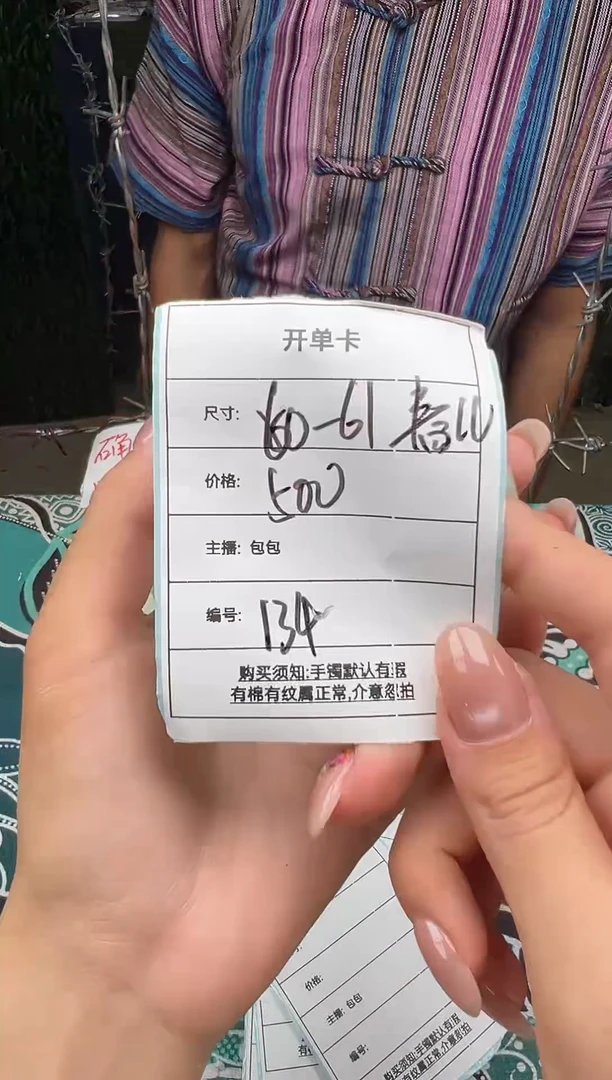 开单卡
尺寸: 60-61
价格: 500
主播: 包包
编号: 134
购买须知:手镯默认有瑕
有棉有纹属正常,介意忽拍
确
价格:
主播: 包包
编号:
购买须知:手镯默认有瑕
有棉有纹属正常,介意忽拍